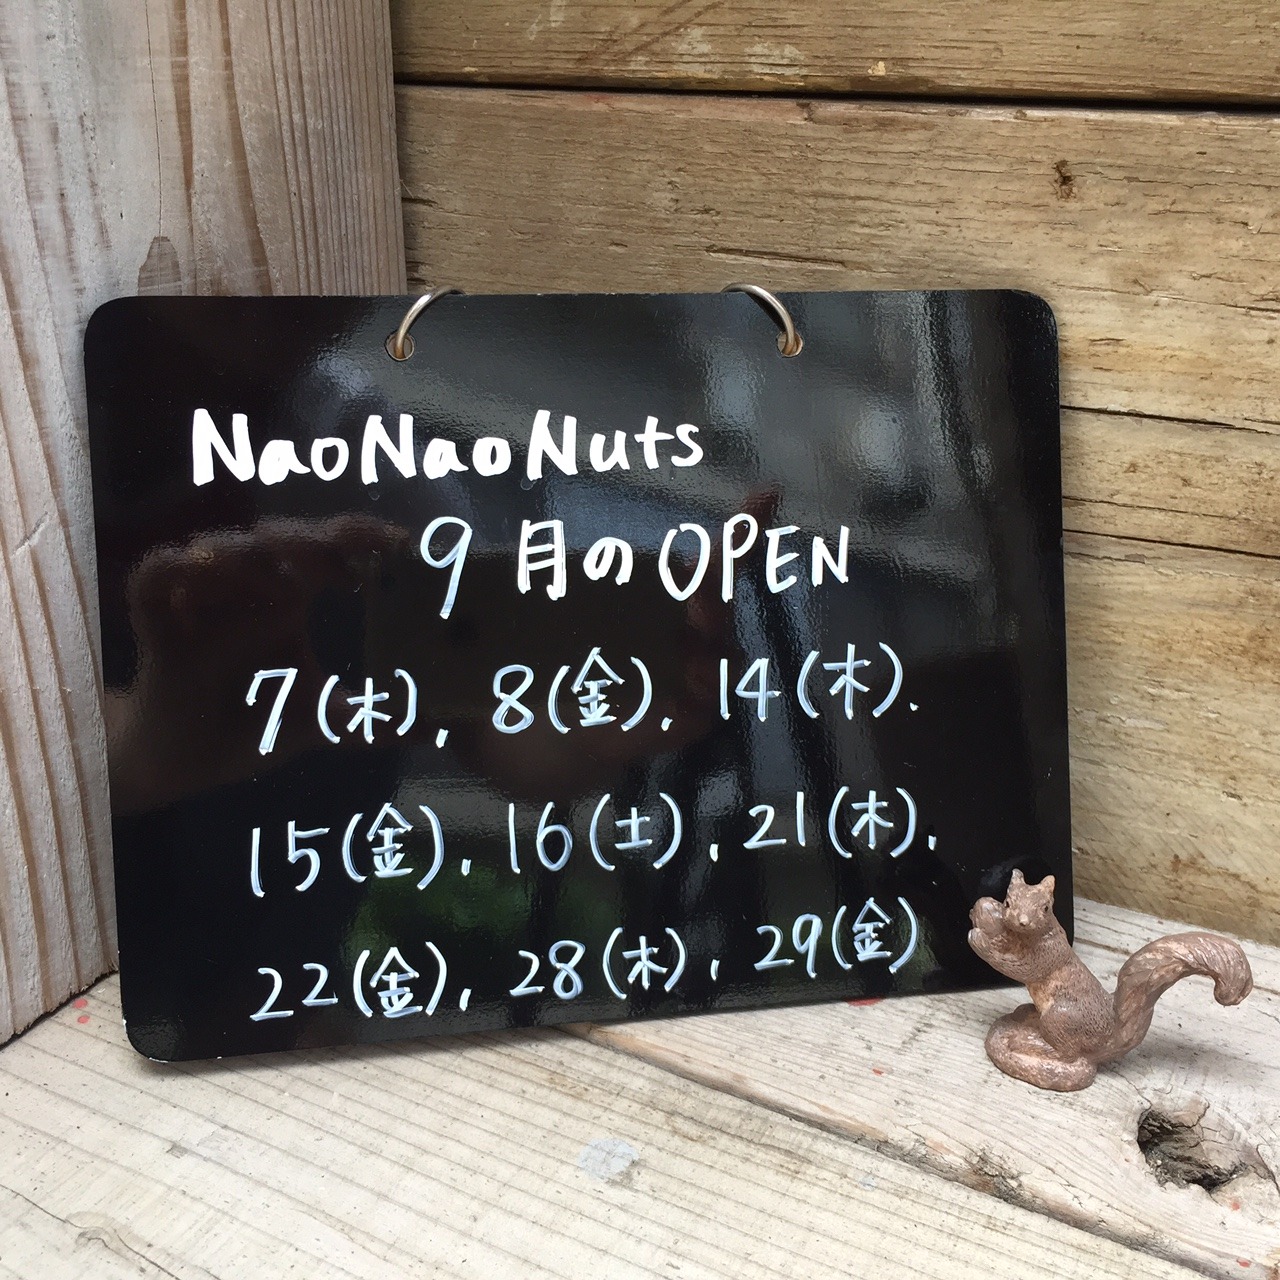 NaoNaoNuts
9月のOPEN
7(木), 8(金), 14(木).
15(金), 16(土), 21(木),
22(金), 28(木), 29(金)